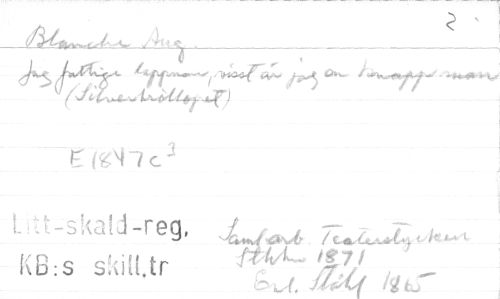 2.
Blanche Aug.
Jag fattige lappman, visst är jag en knapp man
(Silverbröllopet)
E 1847 c³
Litt-skald-reg,
KB:s skill.tr
Saml. arb. Teaterstycken
Sthlm 1871
Enl. Ståhl 1865